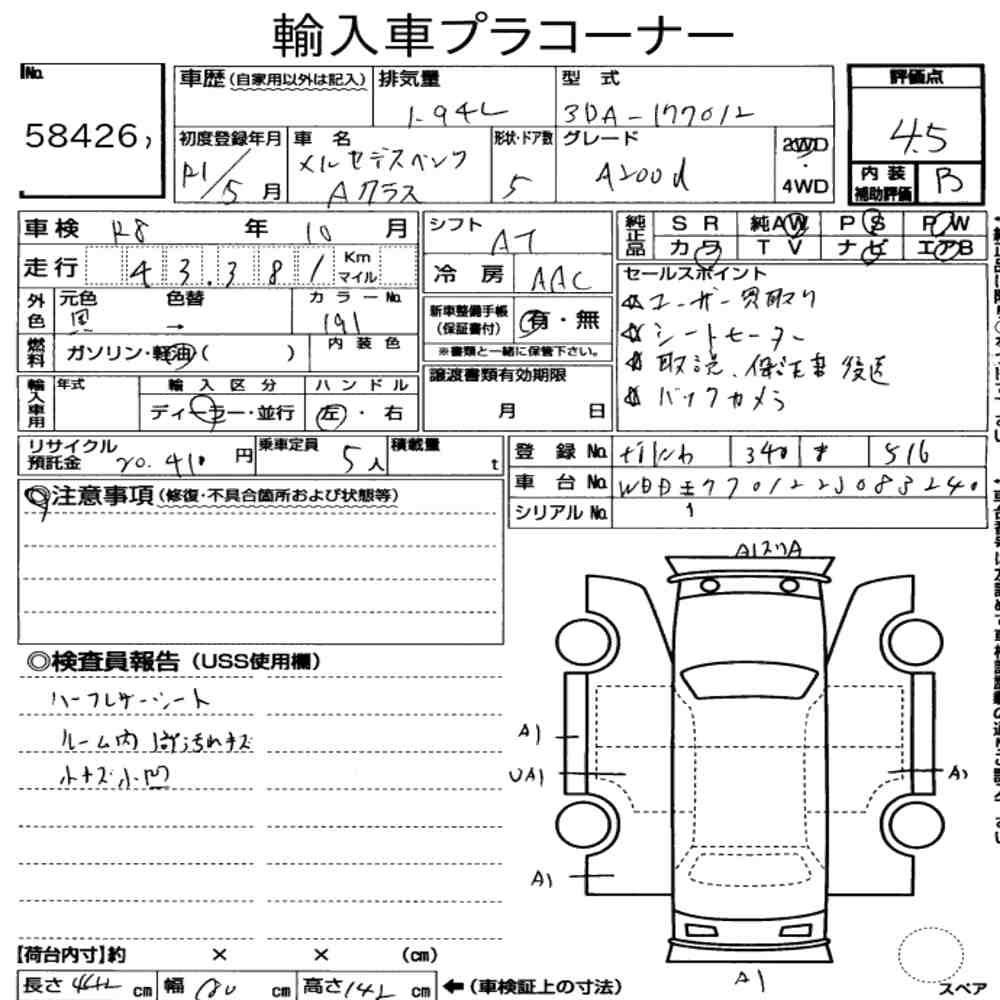 輸入車プラコーナー
No.
58426
車歴(自家用以外は記入)
排気量
1.94L
型 式
3DA-177012
評価点
4.5
内装補助評価
B
初度登録年月
R1/5月
車 名
メルセデスベンツ
Aクラス
形状・ドア数
5
グレード
A200d
2WD
・
4WD
車検 R8 年 10 月
走行 43,381 Km マイル
外色
元色 黒
色替 →
カラーNo. 191
燃料
ガソリン・軽油( )
内装色
輸入車用
年式
輸入区分
ディーラー・並行
ハンドル
左・右
シフト AT
冷房 AAC
新車整備手帳
(保証書付)
有・無
※書類と一緒に保管下さい。
譲渡書類有効期限
月 日
純正品
SR 純AW PS PW
カワ TV ナビ エアB
セールスポイント
☆ユーザー買取り
☆シートヒーター
☆取説、保証書後送
☆バックカメラ
リサイクル預託金 20,410円
乗車定員 5人
積載量 t
登録No. 340 516
車台No. WDD1770122J083240
シリアルNo. 1
注意事項(修復・不具合箇所および状態等)
◎検査員報告(USS使用欄)
ハーフレザーシート
ルーム内 汚れキズ
小キズ小凹
A1
A1
UA1
A1
A1
A1
【荷台内寸】約 × × (cm)
長さ 442 cm 幅 180 cm 高さ 142 cm ←(車検証上の寸法)
スペア